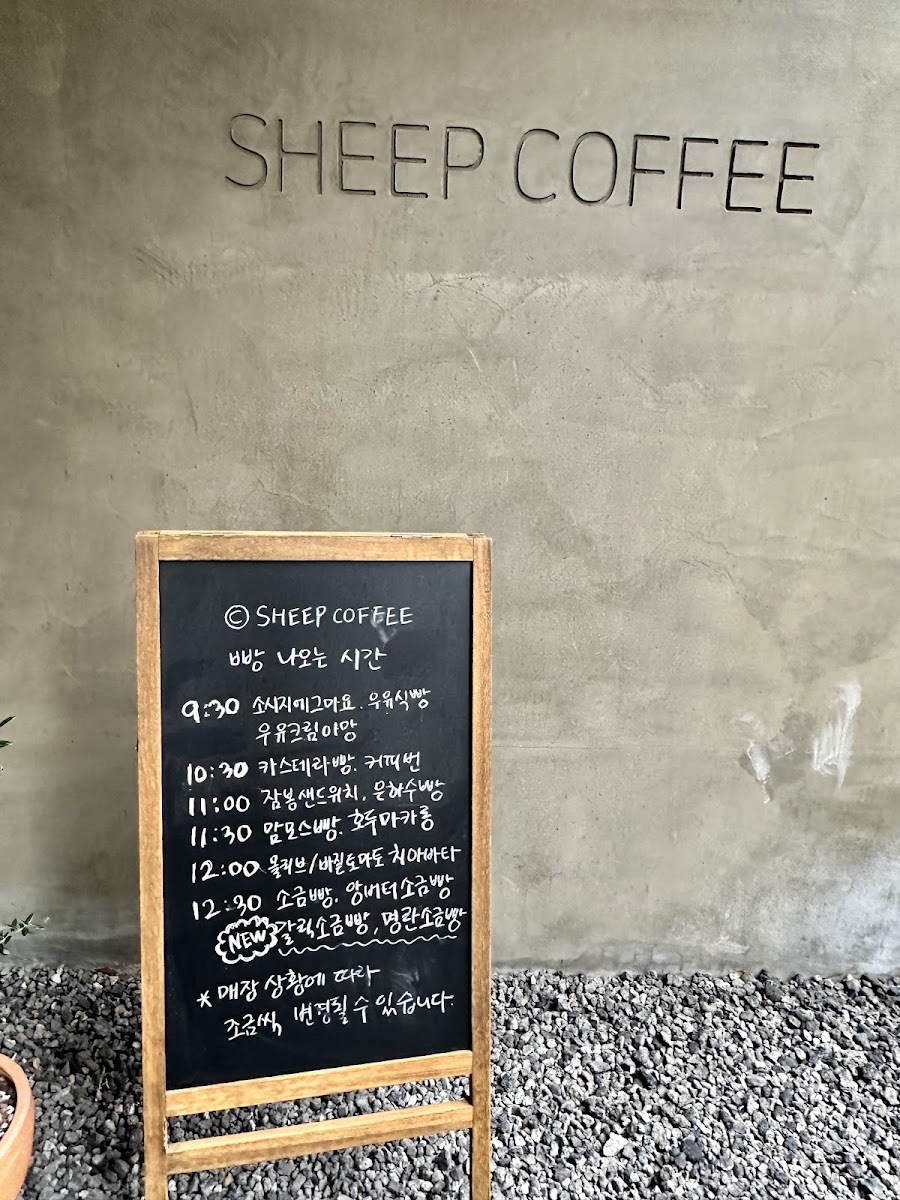 SHEEP COFFEE
© SHEEP COFFEE
빵 나오는 시간
9:30 소시지에그마요. 우유식빵
우유크림아망
10:30 카스테라빵. 커피번
11:00 잠봉샌드위치. 은하수빵
11:30 맘모스빵. 호두마카롱
12:00 올리브/바질토마토 치아바타
12:30 소금빵. 앙버터소금빵
NEW 갈릭소금빵, 명란소금빵
* 매장 상황에 따라
조금씩 변경될 수 있습니다.